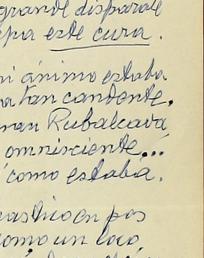 grande disparate
epa este cura.
mi ánimo estaba
tan candente,
Rubalcava
omnisciente...
como estaba.
en pos
como un loco